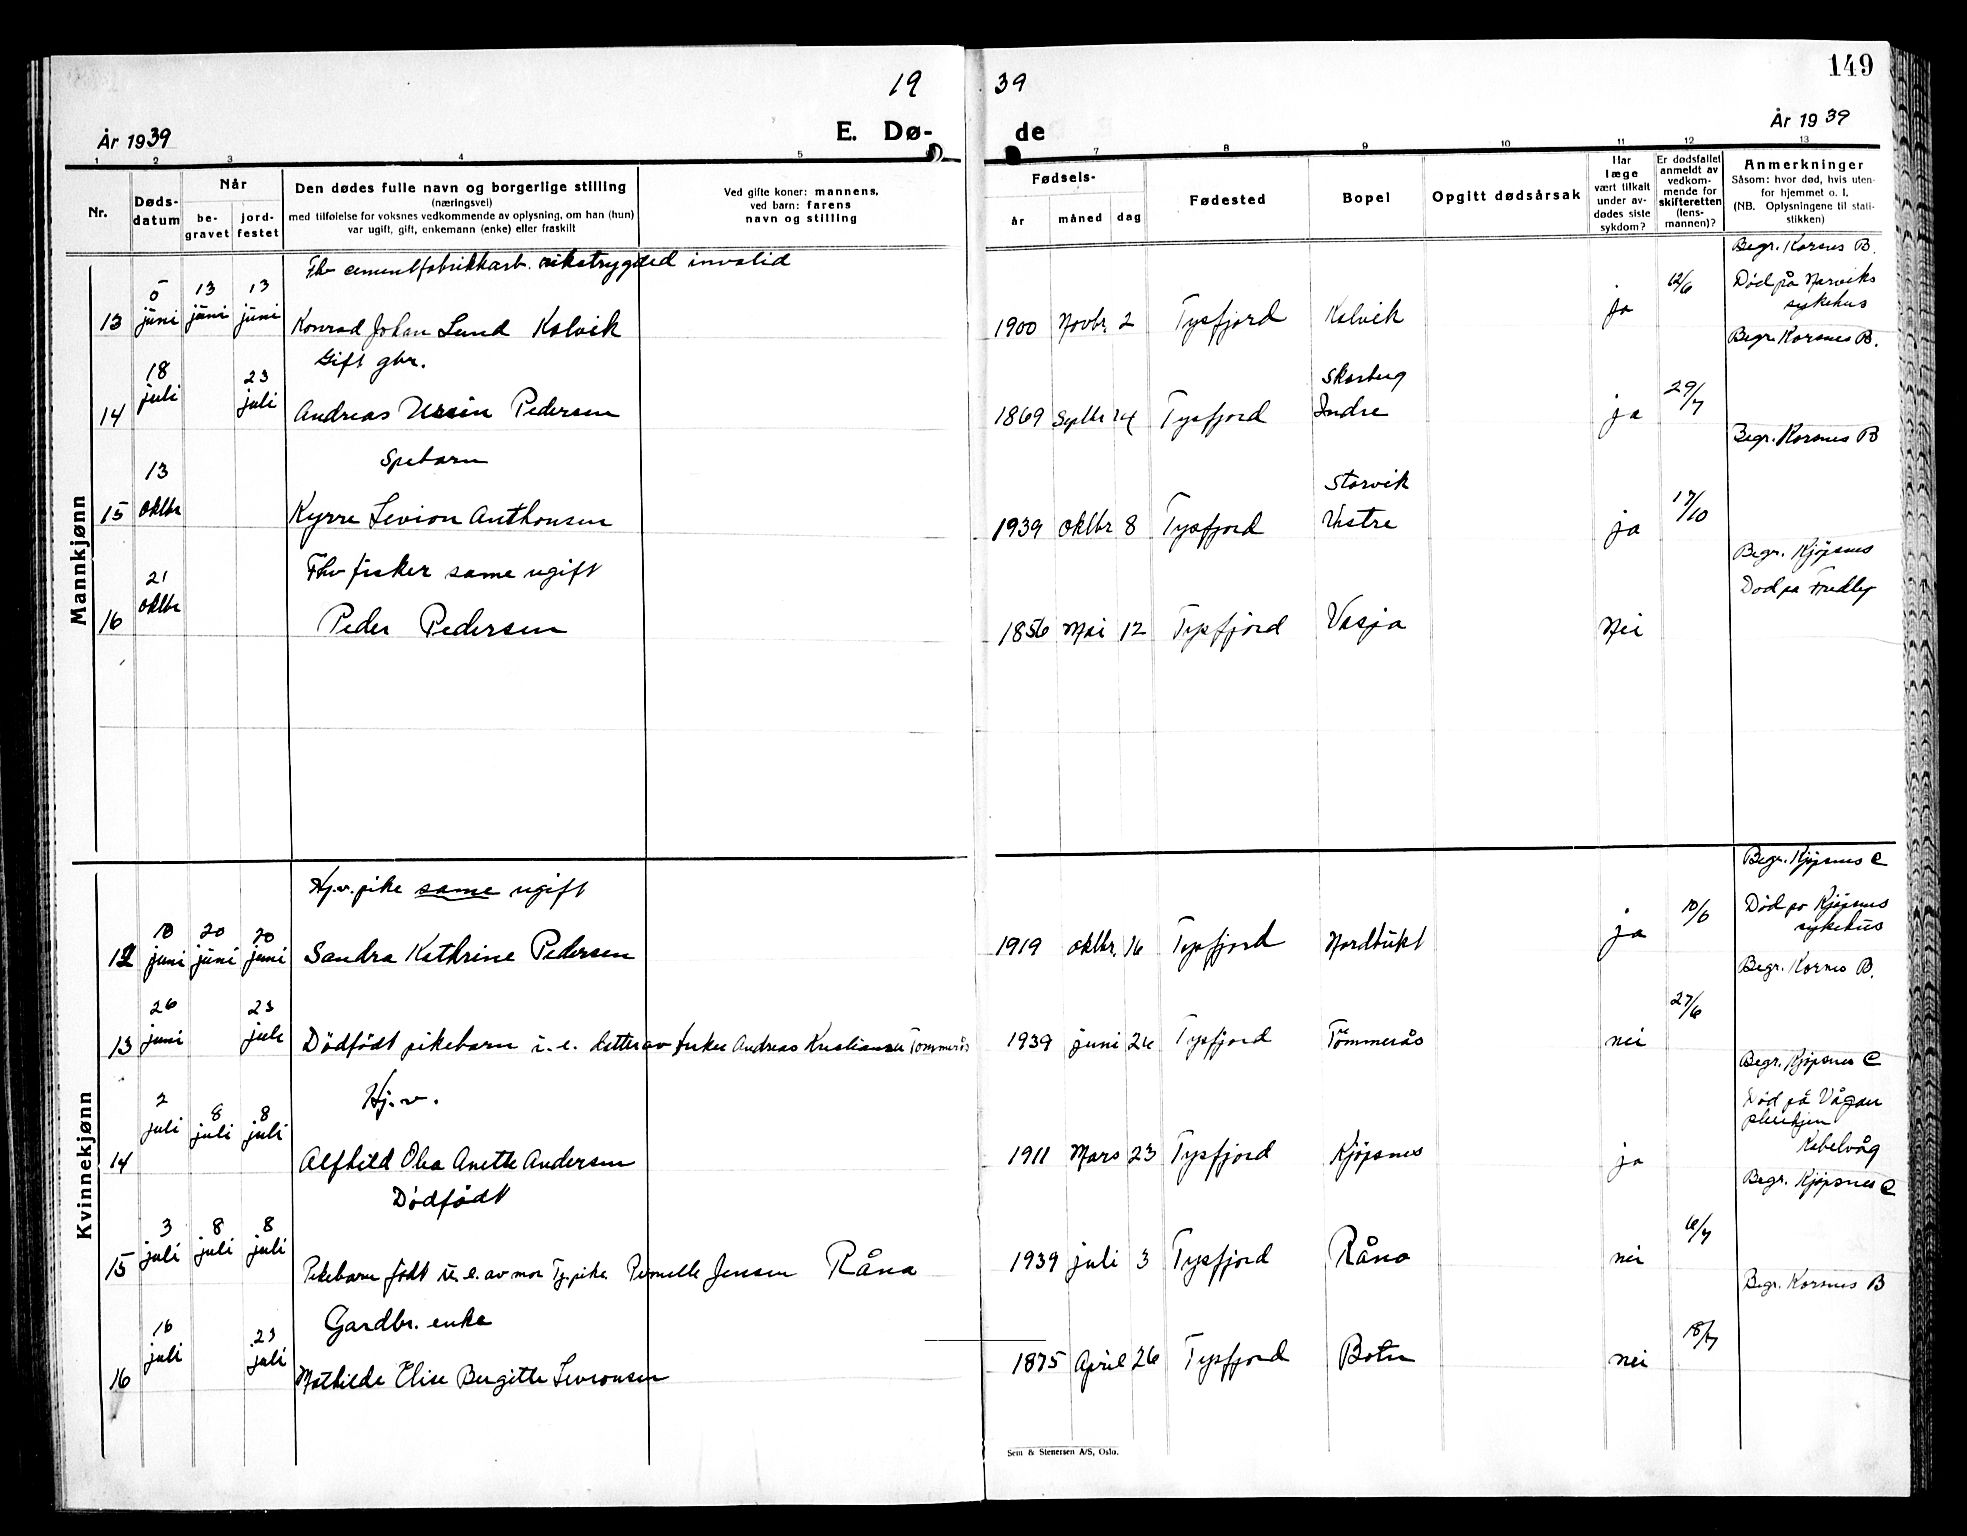 19 39
149
År 1939
E. Dø- de
År 1939
1 2 3 4 5 7 8 9 10 11 12 13
Nr.
Døds-
datum
Når
be-
gravet
jord-
festet
Den dødes fulle navn og borgerlige stilling
(næringsvei)
med tilføielse for voksnes vedkommende av oplysning, om han (hun)
var ugift, gift, enkemann (enke) eller fraskilt
Ved gifte koner: mannens,
ved barn: farens
navn og stilling
Fødsels-
år måned dag
Fødested
Bopel
Opgitt dødsårsak
Har
læge
vært tilkalt
under av-
dødes siste
sykdom?
Er dødsfallet
anmeldt av
vedkom-
mende for
skifteretten
(lens-
mannen)?
Anmerkninger
Såsom: hvor død, hvis uten-
for hjemmet o. l.
(NB. Oplysningene til stati-
stikken)
Mannkjønn
Fhv cementfabrikkarb. rikstrygded invalid
13 5 juni 13 juni 13 juni Konrad Johan Lund Kalvik 1900 Novbr. 2 Tysfjord Kalvik Ja 12/6
Begr. Korsnes B.
Død på Narviks
sykehus
Gift gbr.
14 18 juli 23 juli Andreas Ursin Pedersen 1869 Septbr 14 Tysfjord Skarberg Indre ja 29/7
Begr. Korsnes B.
Spebarn
15 13 oktbr Kyrre Levion Anthonsen 1939 oktbr 8 Tysfjord Storvik Vestre ja 17/10
Begr. Korsnes B
Fhv fisker same ugift
16 21 oktbr Peder Pedersen 1856 Mai 12 Tysfjord Vasja Nei
Begr. Kjöpsnes
Död på Fredly
Kvinnekjønn
Hj.v. pike same ugift
12 10 juni 20 juni 20 juni Sandra Kathrine Pedersen 1919 oktbr. 16 Tysfjord Nordbukt ja 10/6
Begr. Kjöpsnes C
Död på Kjöpsnes
sykehus
13 26 juni 23 juli Dödfödt pikebarn u. e. datter av fisker Andreas Kristiansen Tömmerås 1939 juni 26 Tysfjord Tömmerås nei 27/6
Begr. Kornes B.
Hj.v.
14 2 juli 8 juli 8 juli Alfhild Olea Anette Andersen 1911 Mars 23 Tysfjord Kjöpsnes ja
Begr. Kjöpsnes C
Död på Vågan
pleiehjem
Kabelvåg
Dödfödt
15 3 juli 8 juli 8 juli Pikebarn födt u. e. av mor Tj.pike Pernelle Jensen Råna 1939 juli 3 Tysfjord Råna nei 6/7
Begr. Kjöpsnes C
Gardbr. enke
16 16 juli 23 juli Mathilde Elise Bergitte Levronsen 1875 April 26 Tysfjord Botn nei 18/7
Begr. Korsnes B
Sem & Stenersen A/S, Oslo.